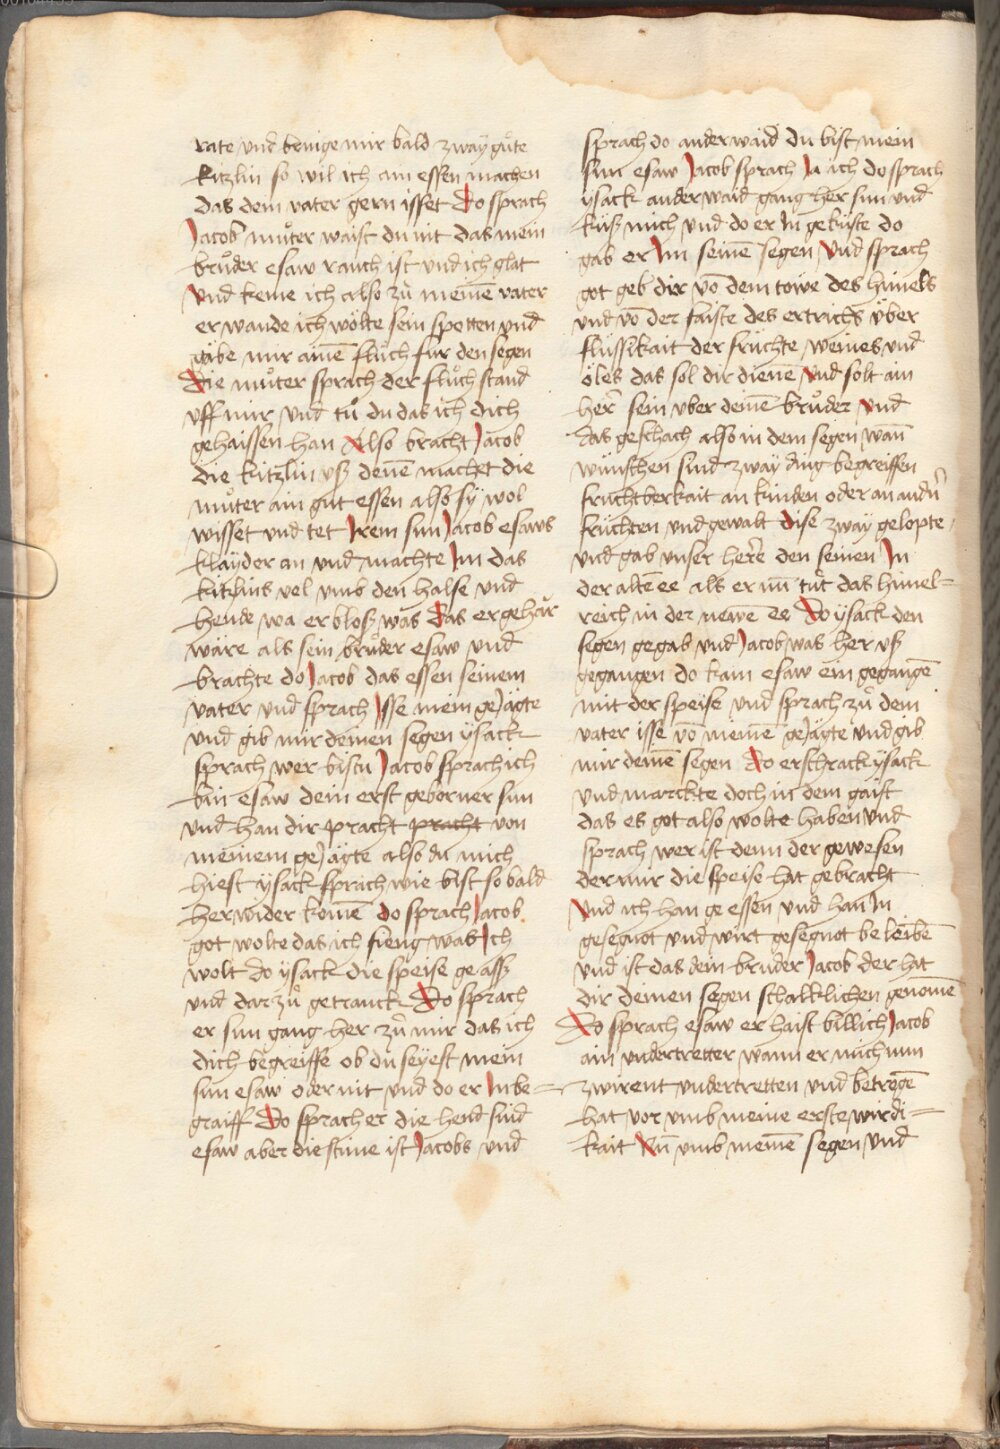 rate und bringe mir bald zwaÿ gůte
kitzlin so wil ich ain essen machen
das dem vater gern isset Do sprach
Jacob můter waist du nit das mein
brůder esaw rauch ist und ich glat
Vnd keme ich also zů meinē vater
er wande ich wölte sein spotten und
gäbe mir ainē flůch für den segen
Die můter sprach der flůch stand
vff mir vnd tů du das ich dich
gehaissen han Also bracht Jacob
die kitzlin vß denē machet die
můter ain gut essen also sÿ wol
wisset vnd tet Jrem sun Jacob esaws
klaÿder an vnd machte Jm das
kitzlins vel vmb den halse vnd
hende wa er bloß was das er gehär
wäre als sein brůder esaw vnd
brachte do Jacob das essen seinem
vater vnd sprach Jsse mein geJägte
vnd gib mir deinen segen ÿsack
sprach wer bistu Jacob sprach ich
bin esaw dein erst geborner sun
vnd han dir pracht pracht von
meinem geJägte also du mich
hiest ÿsack sprach wie bist so bald
her wider komē do sprach Jacob
got wolte das ich fieng was Jch
wolt do ÿsack die speise geässß
vnd dar zů getranck Do sprach
er sun gang her zů mir das ich
dich begreiffe ob du seÿest mein
sun esaw oder nit vnd do er Jn be=
graiff Do sprach er die hend sind
esaw aber die stime ist Jacobs vnd
sprach do anderwaid du bist mein
sun esaw Jacob sprach Ja ich do sprach
ÿsack anderwaid gang her sun vnd
küß mich vnd do er Jn geküste do
gab er Jm seinē segen Vnd sprach
got geb dir vō dem towe des himels
vnd vō der faiste des ertrichs über
flüssikait der früchte weines vnd
öles das sol dir dienē Vnd solt ain
her sein vber deinē brůder Vnd
das geschach also in dem segen wan̄
wünschen sind zwaÿ ding begreiffen
fruchtberkait an kinden oder an andn̄
früchten vnd gewalt dise zwaÿ gelopte
vnd gab vnser here den seinen Jn
der alte ee als er nu̅ tůt das himel=
reich in der newē ee Do ÿsack den
segen gegab vnd Jacob was her vß
gegangen do kam esaw ein gegangē
mit der speise vnd sprach zů dem
vater isse vō meinē geJägte vnd gib
mir deinē segen Do erschrack ÿsack
vnd marckte doch in dem gaist
das es got also wolte haben vnd
sprach wer ist denn der gewesen
der mir die speise hat gebracht
Vnd ich han ge essen vnd han Jn
gesegnot vnd wirt gesegnot be leibē
vnd ist das dein bruder Jacob der hat
dir deinen segen schalklichen genomē
Do sprach esaw er haist billich Jacob
ain vndertretter wann er mich nun
zwirent vndertretten vnd betrogē
hat vor vmb meine erste wirdi=
kait Nu̅ vmb meinē segen vnd